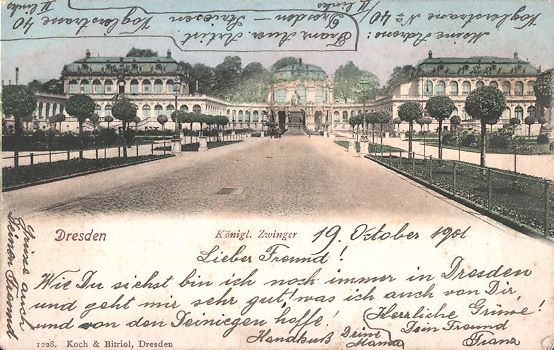 Meine Adresse:
Voglerstrasse No 40
II links
Dresden – Striesen
Franz
Voglerstrasse 40
II links
Dresden
Königl. Zwinger
19. October 1901
Lieber Freund!
Wie Du siehst bin ich noch immer in Dresden
und geht mir sehr gut, was ich auch von Dir,
und von den Deinigen hoffe!
Herzliche Grüsse!
Dein Freund
Franz
Handkuß Deine
Mama
Grüsse auch
Deinen Freund
1228. Koch & Bitriol, Dresden